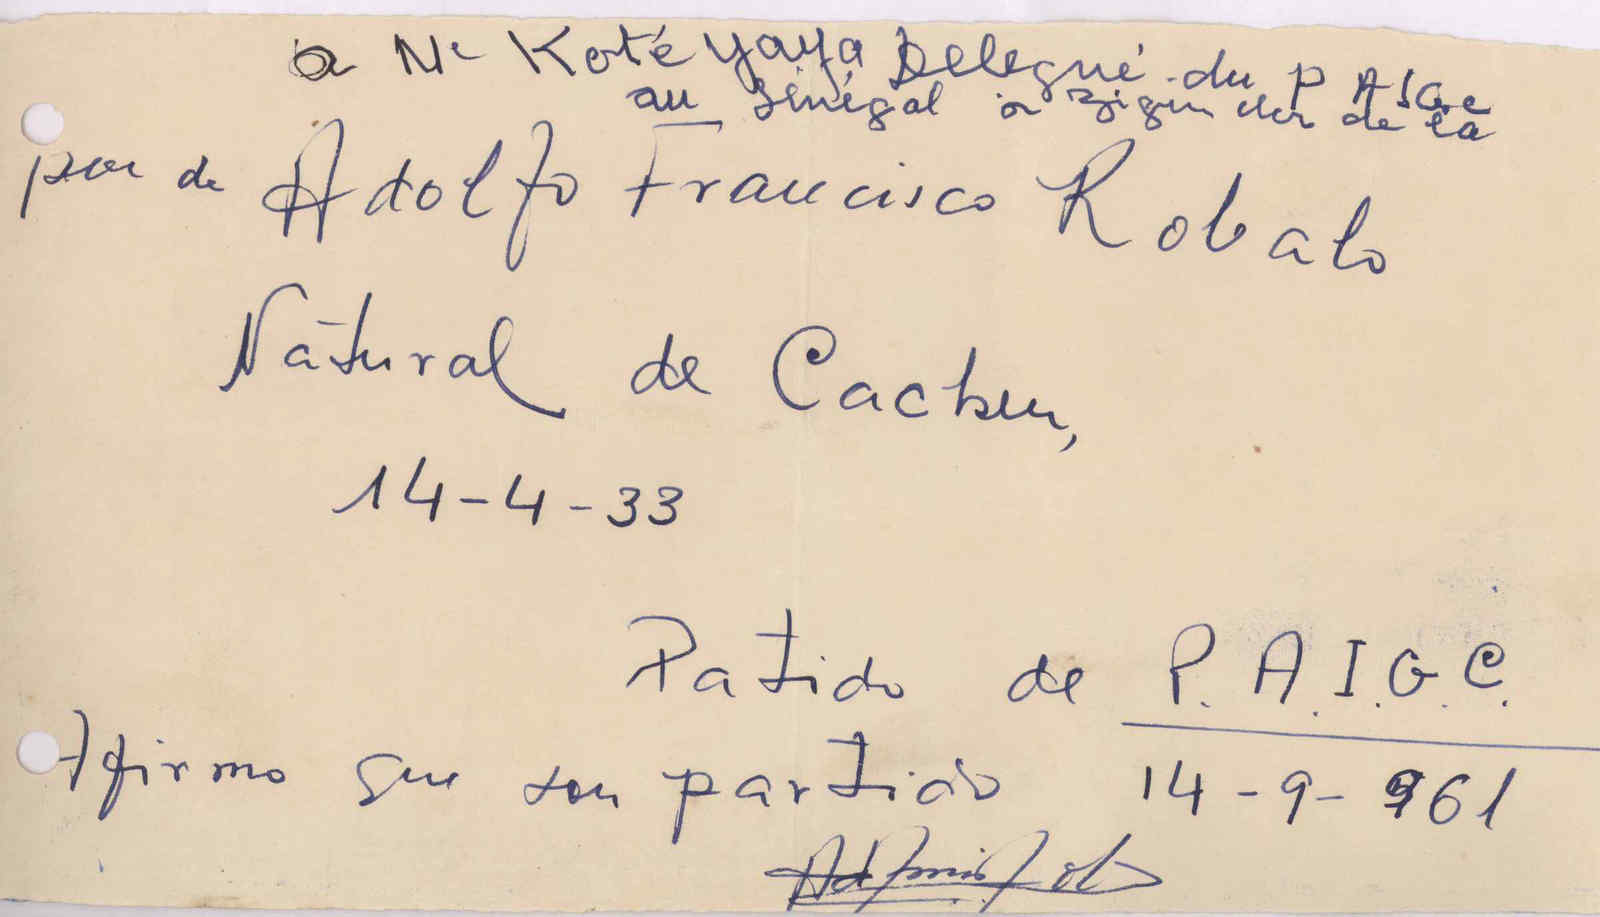 a Mr Koté Yaya Delegué du P A I G C
au Sénégal a Ziguinchor de la
par de Adolfo Francisco Robalo
Natural de Cacheu,
14-4-33
Patido de P.A.I.G.C.
Afirmo que sou partido 14-9-961